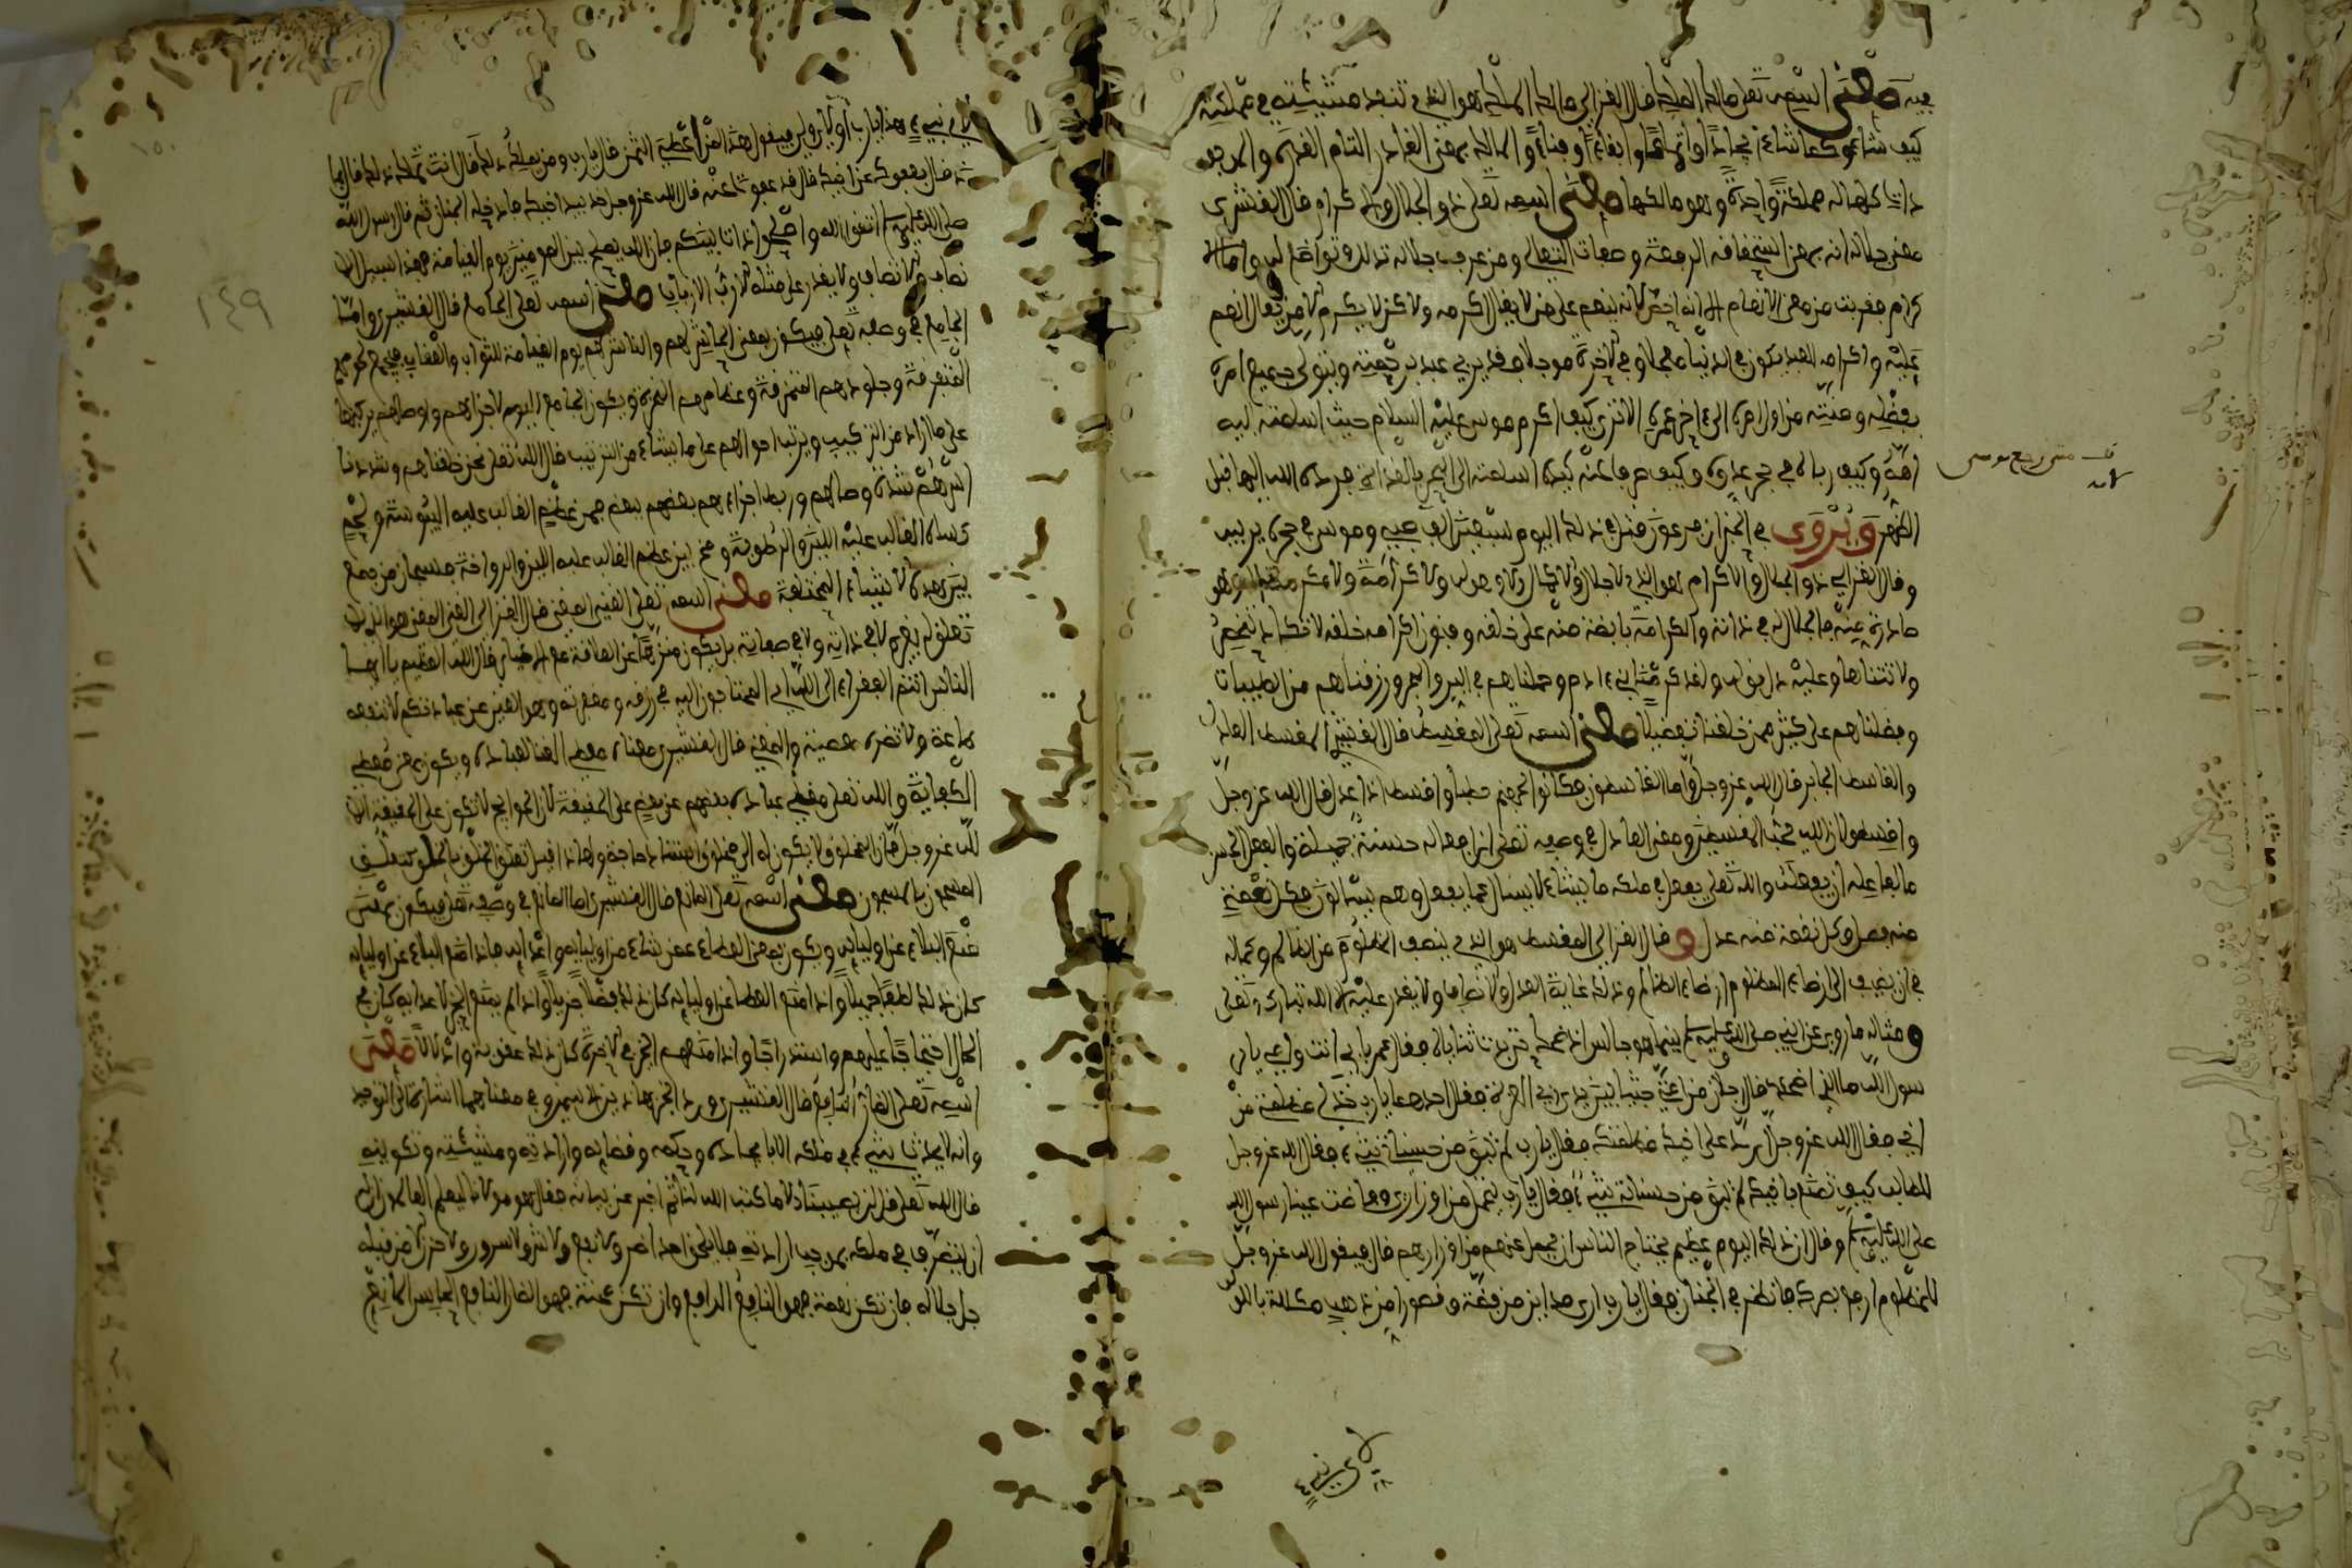 فيه معنى اسمه تعلى مالك الملك قال الغزالي مالك الملك هو الذي تنفذ مشيئته في مملكته
كيف شاء وكما شاء ايجادا واعداما وابقاء وافناء والمالك بمعنى القادر التام القدرة والموجو
دات كلها له مملكة واحدة وهو مالكها معنى اسمه تعلى ذو الجلال والاكرام قال القشيري
معنى جلاله انه بمعنى استحقاقه الرفعة وصفات التعالي ومن عرف جلاله تذلل وتواضع له واما الا
كرام فقريب من معنى الانعام الا انه اخص لانه ينعم على من لا يقال اكرمه ولاكن لا يكرم الا من يقال انعم
عليه واكرامه للعبد يكون في الدنيا معجلا وفي الاخرة موجلا وقد يربي عبده برحمته ويتولى جميع امره
بفضله ومنته من اول امره الى ءاخر عمره الا ترى كيف اكرم موسى عليه السلام حيث اسلمته اليه
امه وكيف رباه في حجر عدوه وكيف صرف عنه كيده اسلمته الى البحر بالغداة فرده الله اليها قبل
الظهر ويروى في الخبر ان فرعون قتل في ذلك اليوم سبعين الف صبي وموسى في حجره يربيه
وقال الغزالي ذو الجلال والاكرام هو الذي لا جلال ولا كمال الا وهو له ولا كرامة ولا مكرمة الا وهي
صادرة منه فالجلال له في ذاته والكرامة فايضة منه على خلقه وفنون اكرامه خلقه لا تكاد تنحصر
ولا تتناها وعليه دل قوله ولقد كرمنا بني ءادم وحملناهم في البر والبحر ورزقناهم من الطيبات
وفضلناهم على كثير ممن خلقنا تفضيلا معنى اسمه تعلى المقسط قال القشيري المقسط العادل
والقاسط الجاير قال الله عز وجل واما القاسطون فكانوا لجهنم حطبا واقسط اذا عدل قال الله عز وجل
واقسطوا ان الله يحب المقسطين ومعنى العادل في وصفه تعلى ان افعاله حسنة جميلة والفعل الحسن
ما لفاعله ان يفعله والله تعلى يفعل في ملكه ما يشاء لا يسال عما يفعل وهم يسالون فكل نعمة
منه فضل وكل نقمة منه عدل وقال الغزالي المقسط هو الذي ينصف المظلوم من الظالم وكماله
في ان يضيف الى ارضاء المظلوم ارضاء الظالم وذلك غاية العدل والانصاف ولا يقدر عليه الا الله تبارك وتعلى
ومثاله ما روي عن النبي صلى الله عليه وسلم بينما هو جالس اذ ضحك حتى بدت ثناياه فقال عمر بابي انت وامي يا ر
سول الله ما الذي اضحكك قال رجلان من امتي جثيا بين يدي رب العزة فقال احدهما يا رب خذ لي مظلمتي من
اخي فقال الله عز وجل رد على اخيك مظلمته فقال يا رب لم يبق من حسناتي شيء فقال الله عز وجل
للطالب كيف تصنع باخيك لم يبق من حسناته شيء فقال يا رب ليحمل من اوزاري وفاضت عينا رسول الله
صلى الله عليه وسلم وقال ان ذلك اليوم عظيم يحتاج الناس ان يحمل عنهم من اوزارهم قال فيقول الله عز وجل
للمظلوم ارفع بصرك فانظر في الجنان فقال يا رب ارى مداين من فضة وقصورا من ذهب مكللة باللؤلؤ
لاي نبيء
لاي نبيء هذا يا رب او لاي ولي فيقول هذا لمن اعطى الثمن قال يا رب ومن يملك ذلك قال انت تملك ذلك قال بما
ذا قال بعفوك عن اخيك قال قد عفوت عنه قال الله عز وجل خذ بيد اخيك فادخله الجنان ثم قال رسول الله
صلى الله عليه وسلم اتقوا الله واصلحوا ذات بينكم فان الله يصلح بين المومنين يوم القيامة فهذا سبيل الان
تصاف والانصاف ولا يقدر على مثله الا رب الارباب معنى اسمه تعلى الجامع قال القشيري واما
الجامع في وصفه تعلى فيكون بمعنى الحاشر لهم والناشر لهم يوم القيامة للثواب والعقاب فيجمع لحومهم
المتفرقة وجلودهم المتمزقة وعظامهم النخرة ويكون الجامع اليوم لاجزائهم واوصالهم يركبها
على ما اراد من التركيب ويرتب احوالهم على ما يشاء من الترتيب قال الله تعلى نحن خلقناهم وشددنا
اسرهم شدة وصالهم وربط اجزاءهم بعضهم ببعض فمن عظم الغالب عليه اليبوسة ولحم
كساه الغالب عليه اللين والرطوبة ومخ بين عظم الغالب عليه اللين والرواحة فسبحان من جمع
بين هذه الاشياء المختلفة معنى اسمه تعلى الغني المغني قال الغزالي الغني المغني هو الذي لا
تعلق له بغيره لا في ذاته ولا في صفاته بل يكون منزها عن العلاقة مع الاغيار قال الله العظيم يا ايها
الناس انتم الفقراء الى الله اي المحتاجون اليه في رزقه ومغفرته وهو الغني عن عبادتكم لا تنفعه
طاعة ولا تضره معصية والمغني قال القشيري معناه معطي الغنا لعباده ويكون بمعنى معطي
الكفاية والله تعلى مغني عباده بعضهم عن بعض على الحقيقة لان الحوايج لا تكون على الحقيقة الا
لله عز وجل فان المخلوق لا يكون له الى مخلوق مثله حاجة ولهذا قيل تعلق الخلق بالخلق كتعلق
المسجون بالمسجون معنى اسمه تعلى المانع قال القشيري اما المانع في وصفه تعلى فيكون بمعنى
منع البلاء عن اوليايه ويكون بمعنى العطاء عمن شاء من اوليايه واعدايه فاذا منع البلاء عن اوليايه
كان ذلك لطفا جميلا واذا منع العطا عن اوليايه كان ذلك فضلا جزيلا واذا لم يمنع الخير لاعدايه كان في
الحال احتجاجا عليهم واستدراجا واذا منعهم الخير في الاخرة كان ذلك عقوبة واذلالا معنى
اسمه تعلى الضار النافع قال القشيري ورد الخبر بهاذين الاسمين وفي معناهما اشارة الى التوحيد
وانه لا يحدث شيء في ملكه الا بايجاده وحكمه وقضايه وارادته ومشيئته وتكوينه
قال الله تعلى قل لن يصيبنا الا ما كتب الله لنا ثم اخبر عن بيانه فقال هو مولانا ليعلم العالم ان له
ان يتصرف في ملكه بموجب ارادته فلا يلحق احدا ضر ولا نفع ولا شر ولا سرور ولا حزن الا من قبله
جل جلاله فان تكن نعمة فهو النافع الدافع وان تكن محنة فهو الضار النافع الحابس المانع
١٤٩